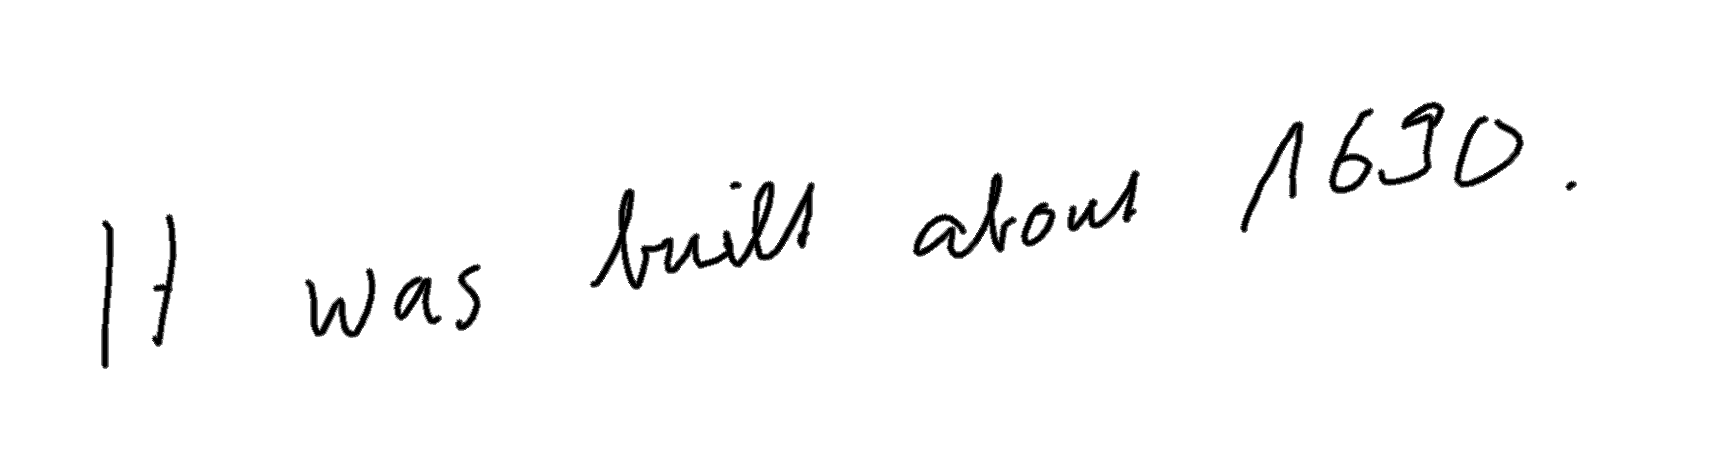 It was built about 1690.